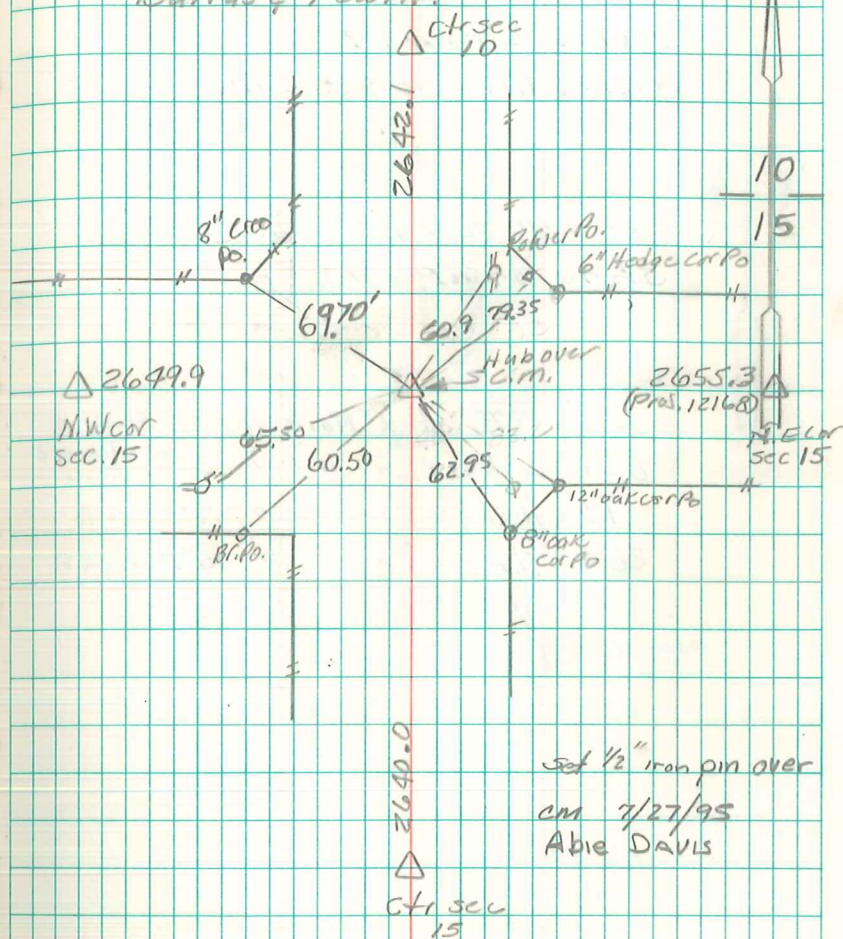 Ctr sec
10
2642.1
10
15
8" Creo
Po.
Power Po.
6" Hedge cor Po
69.70'
60.9
79.35
Hub over
2649.9
N.W cor
Sec. 15
2655.3
(Pros. 12168)
N.E Cor
sec 15
65.50
60.50
62.95
12" oak cor Po
Br. Po.
8" oak
cor Po
2640.0
set 1/2" iron pin over
cm 7/27/95
Abie Davis
Ctr sec
15